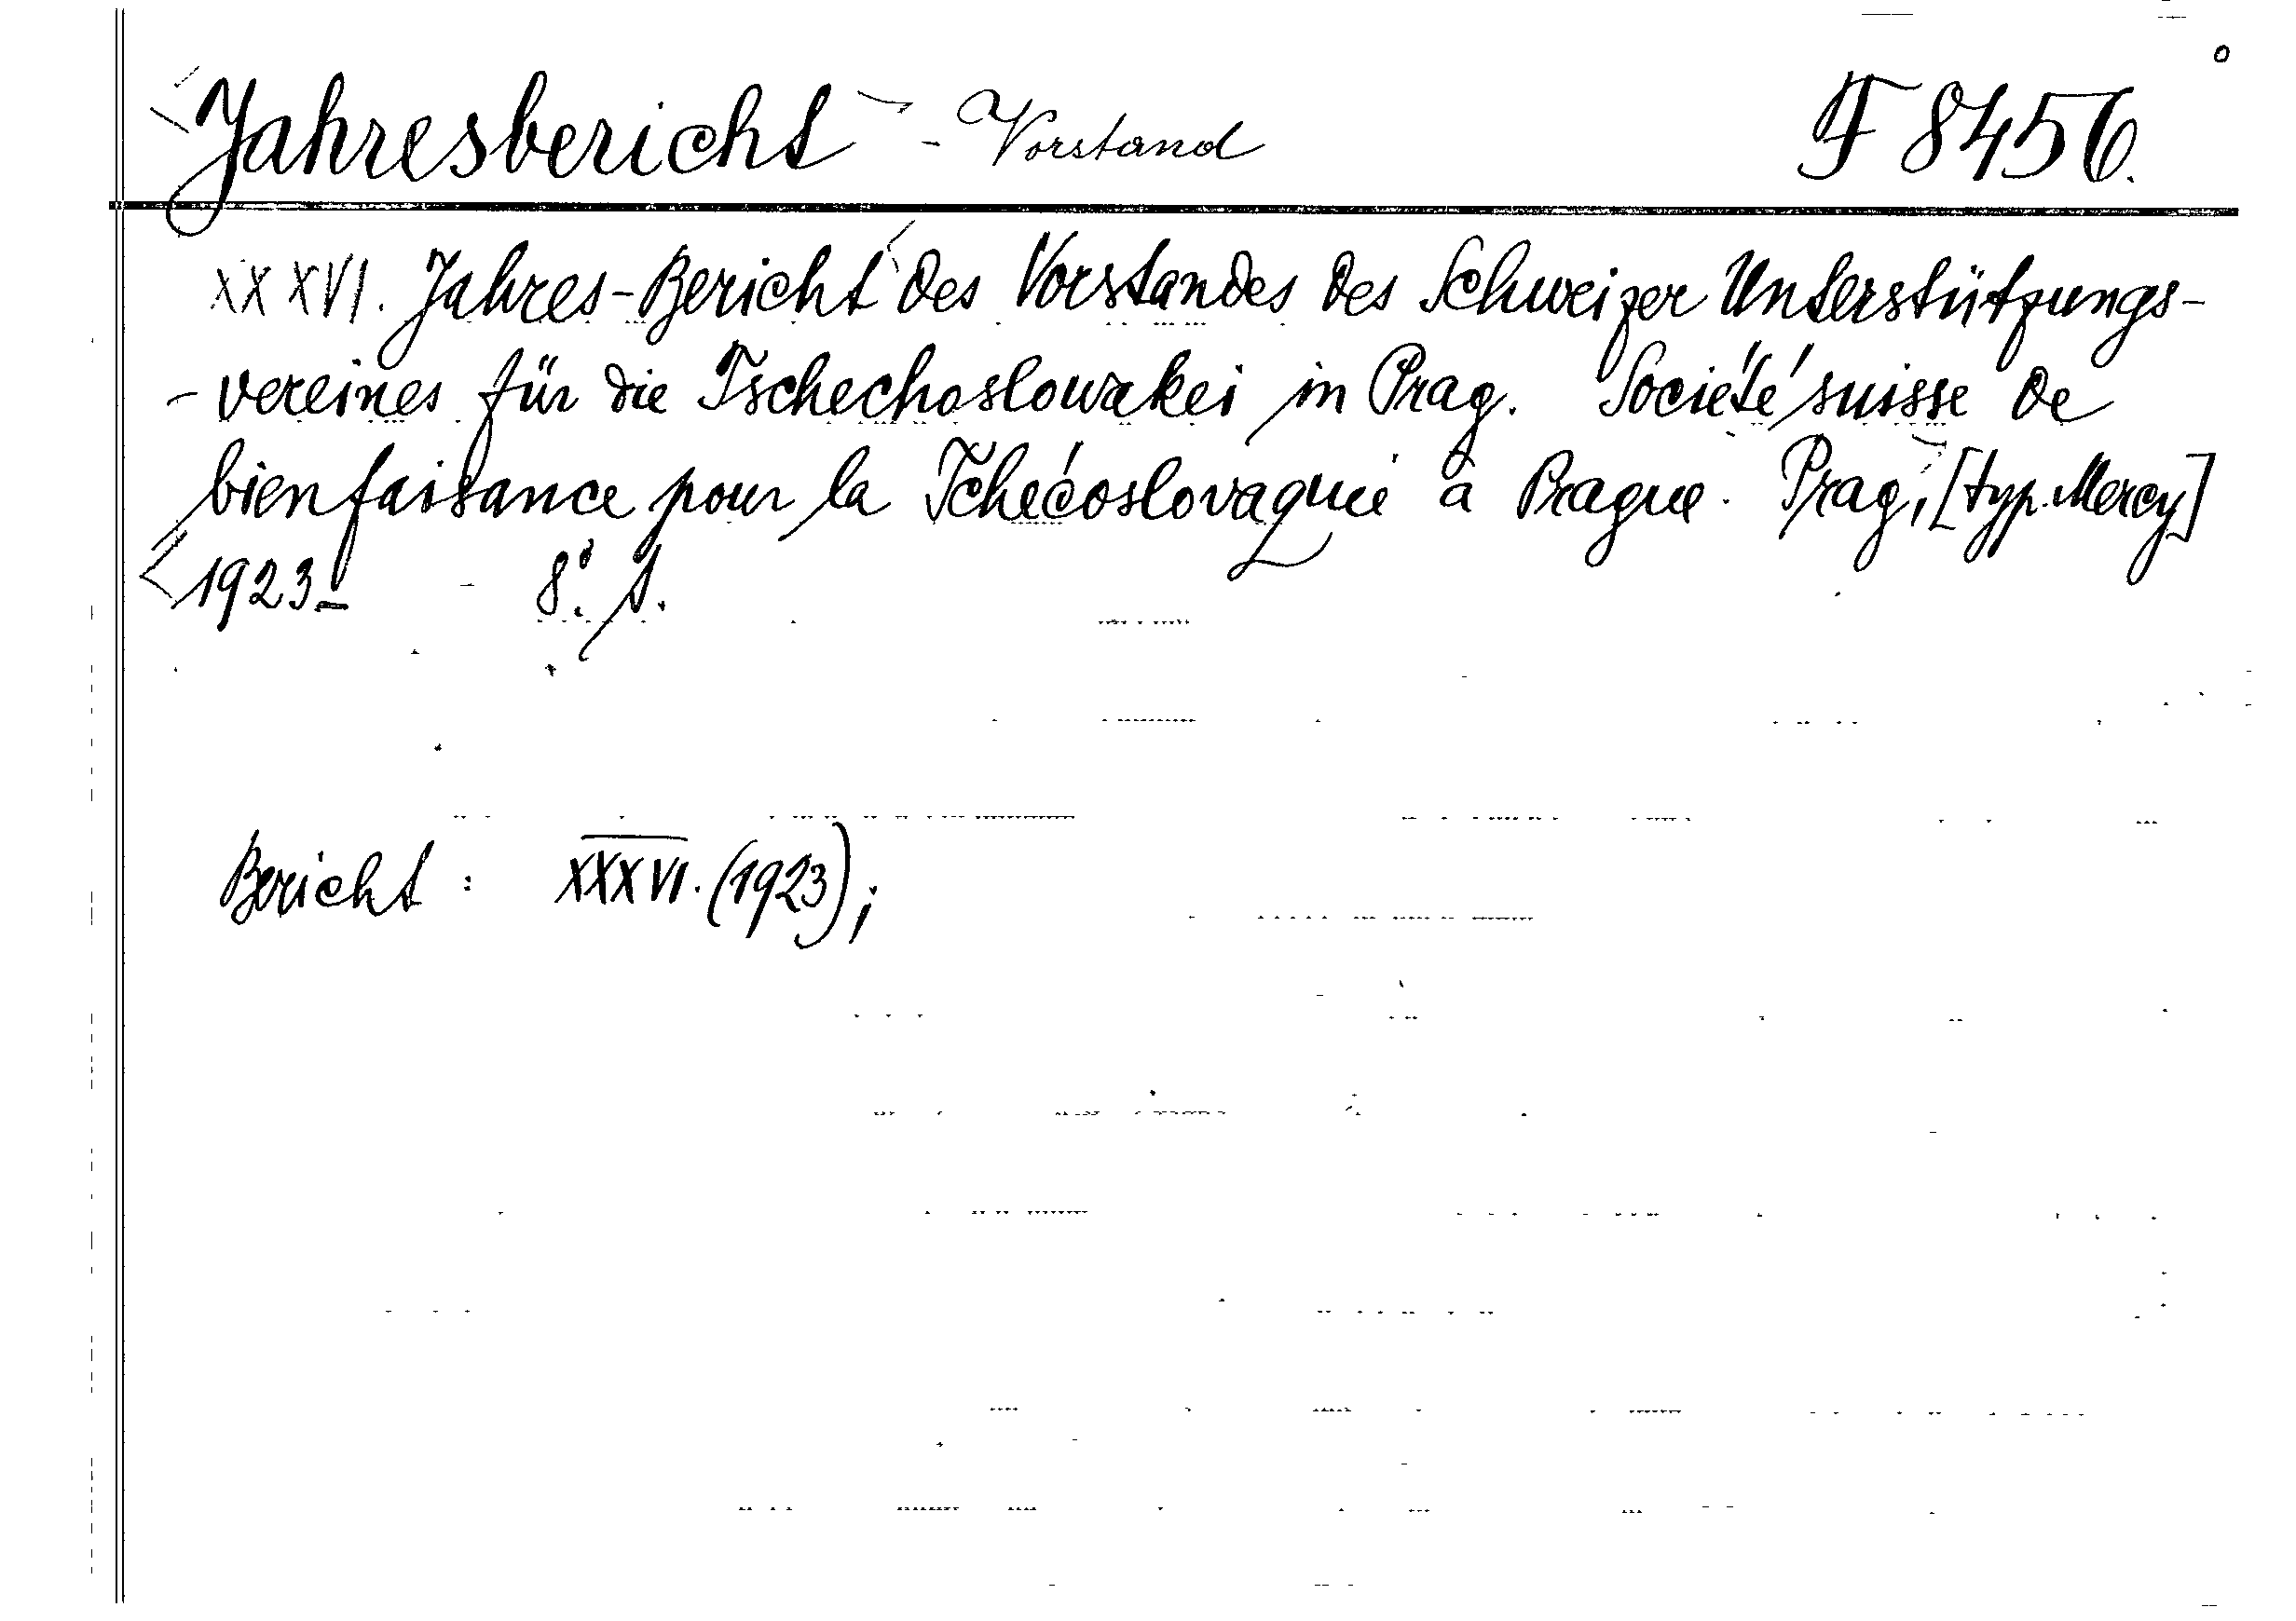 Jahresbericht - Vorstand F 8456.
XXXVI. Jahres-Bericht des Vorstandes des Schweizer Unterstützungs-
-vereines für die Tschechoslowakei in Prag. Société suisse de
bienfaisance pour la Tchécoslovaquie à Prague. Prag, [typ. Mercy]
1923- 8°. s.
Bericht : XXXVI. (1923);